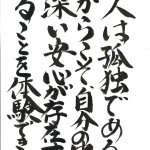 人は孤独である
からこそ、自分の中
深い安心が存在す
ることを体験でき